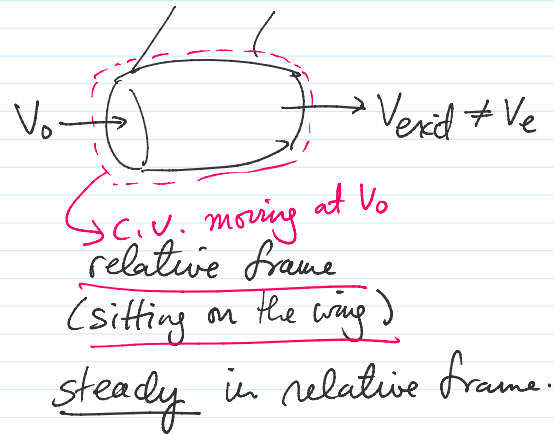 V₀ → → V_exid ≠ V_e
C.V. moving at V₀
relative frame
(sitting on the wing)
steady in relative frame.